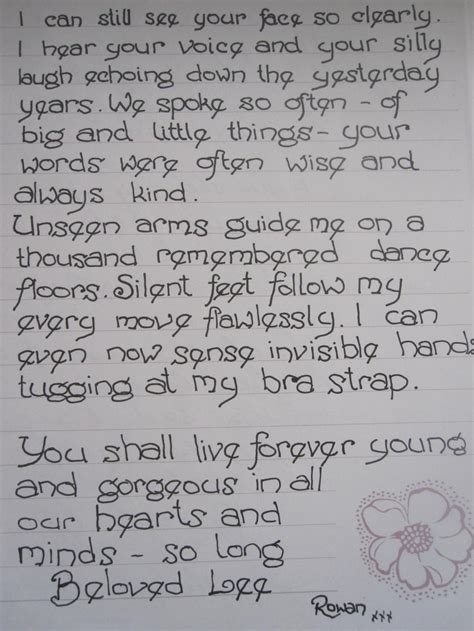 I can still see your face so clearly.
I hear your voice and your silly
laugh echoing down the yesterday
years. We spoke so often - of
big and little things - your
words were often wise and
always kind.
Unseen arms guide me on a
thousand remembered dance
floors. Silent feet follow my
every move flawlessly. I can
even now sense invisible hands
tugging at my bra strap.
You shall live forever young
and gorgeous in all
our hearts and
minds - so long
Beloved Lee
Rowan xxx